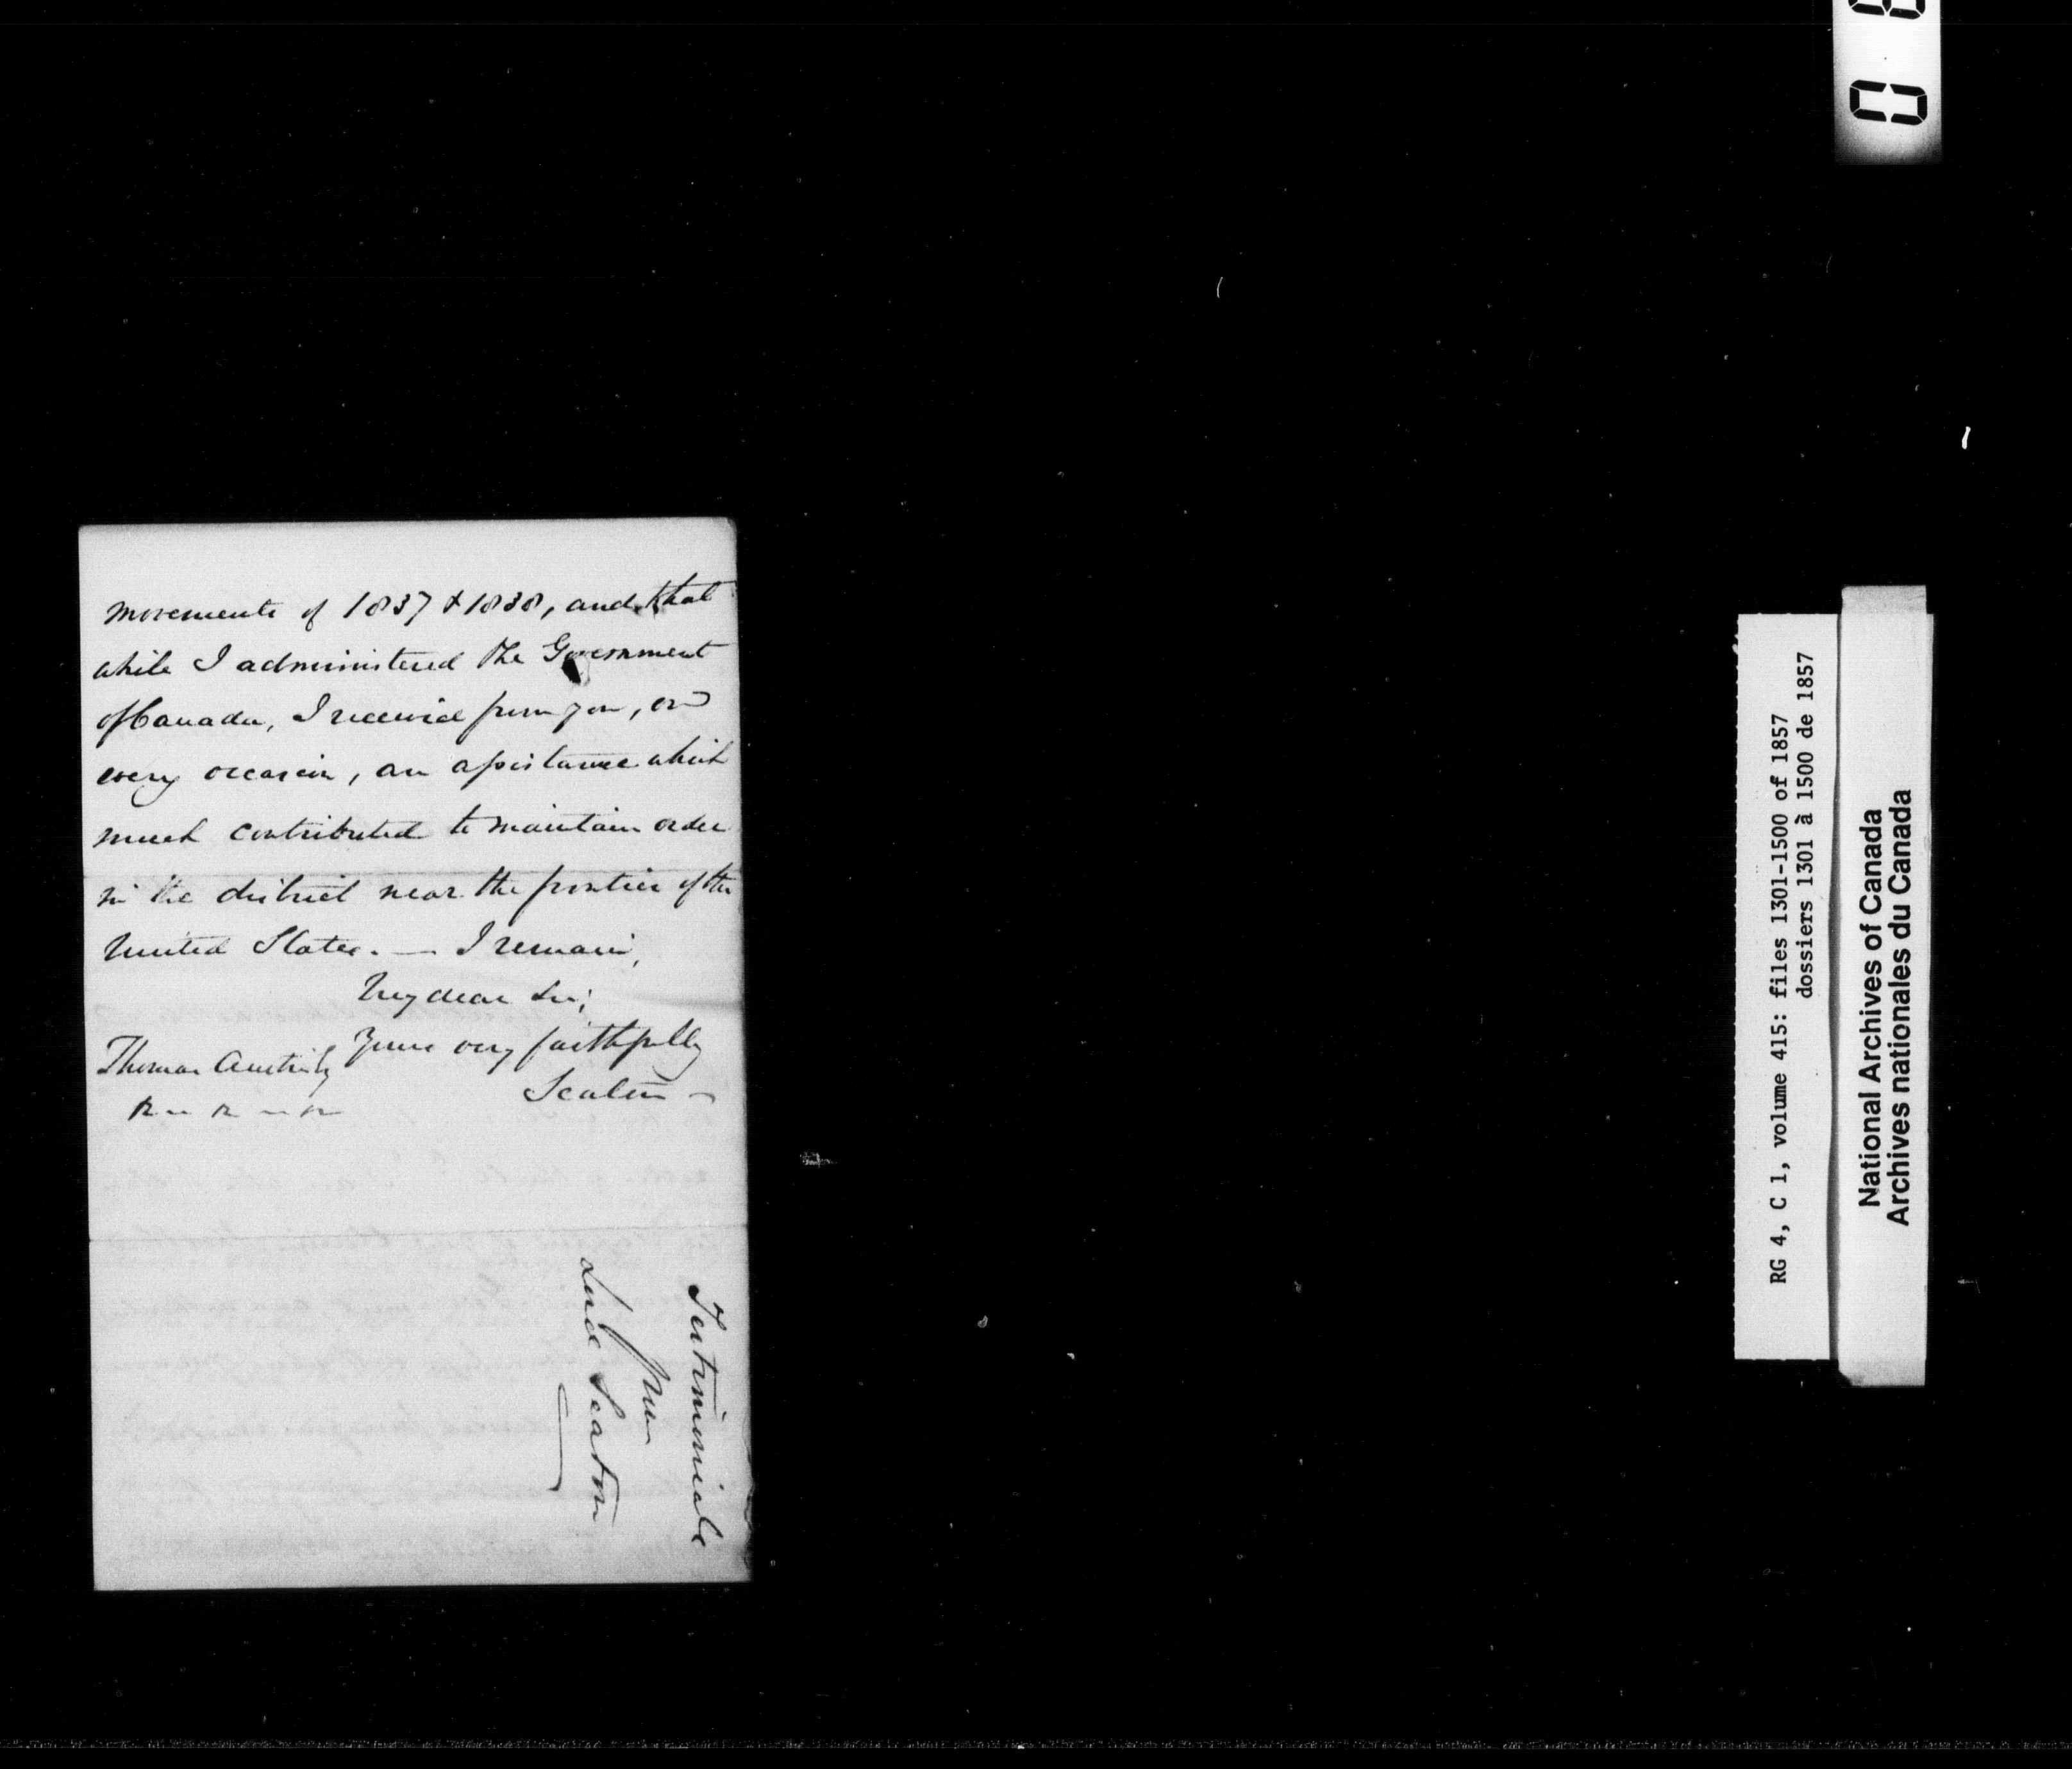 movements of 1837 & 1838, and that
while I administered the Government
of Canada, I received from you, on
every occasion, an assistance which
much contributed to maintain order
in the district near the frontier of the
United States. — I remain,
My dear Sir,
Yours very faithfully
Seaton
Thomas Austin
Testimoniale
from
Lord Seaton
RG 4, C 1, volume 415: files 1301-1500 of 1857
dossiers 1301 à 1500 de 1857
National Archives of Canada
Archives nationales du Canada